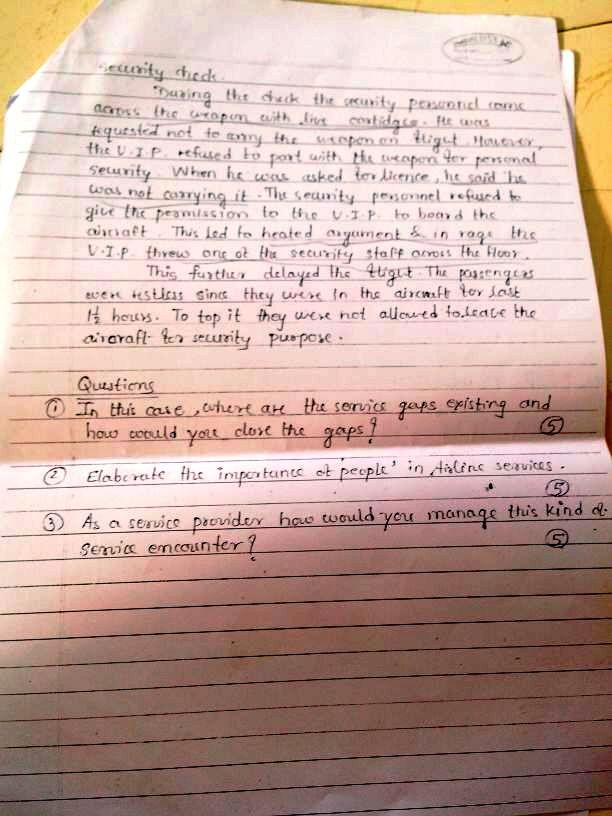 security check.
During the check the security personnel came
across the weapon with live cartidges. He was
requested not to carry the weapon on flight. However,
the V.I.P. refused to part with the weapon for personal
security. When he was asked for licence, he said he
was not carrying it. The security personnel refused to
give the permission to the V.I.P. to board the
aircraft. This led to heated argument & in rage the
V.I.P. threw one of the security staff across the floor.
This further delayed the flight. The passengers
were restless since they were in the aircraft for last
1½ hours. To top it they were not allowed to leave the
aircraft for security purpose.
Questions
① In this case, where are the service gaps existing and
how would you close the gaps? ⑤
② Elaborate the importance of 'people' in Airline services.
⑤
③ As a service provider how would you manage this kind of
service encounter? ⑤